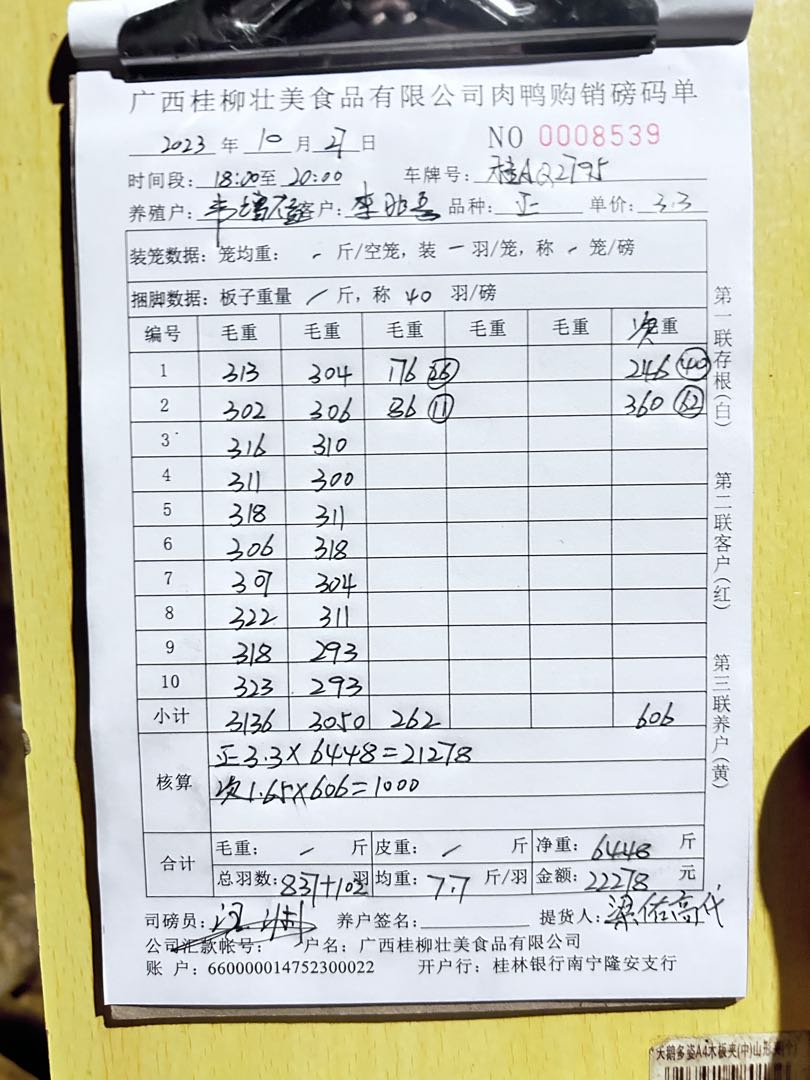 广西桂柳壮美食品有限公司肉鸭购销磅码单
2023 年 10 月 27 日 NO 0008539
时间段: 18:00至 20:00 车牌号: 桂AQ2795
养殖户: 客户: 李 品种: 正 单价: 3.3
装笼数据: 笼均重: - 斤/空笼, 装 - 羽/笼, 称 - 笼/磅
捆脚数据: 板子重量 / 斤, 称 40 羽/磅
编号 毛重 毛重 毛重 毛重 毛重 次重
1 313 304 176 246 40
2 302 306 86 11 360 62
3 316 310
4 311 300
5 318 311
6 306 318
7 307 304
8 322 311
9 318 293
10 323 293
小计 3136 3050 262 606
核算 正3.3×6448=21278
次1.65×606=1000
合计 毛重: - 斤 皮重: - 斤 净重: 6448 斤
总羽数: 837+102 羽 均重: 7.7 斤/羽 金额: 22278 元
司磅员: 养户签名: 提货人: 梁佑高代
公司汇款帐号: 户名: 广西桂柳壮美食品有限公司
账 户: 660000014752300022 开户行: 桂林银行南宁隆安支行
第一联存根(白)
第二联客户(红)
第三联养户(黄)
天鹅多姿A4木板夹(中)山形夹(个)